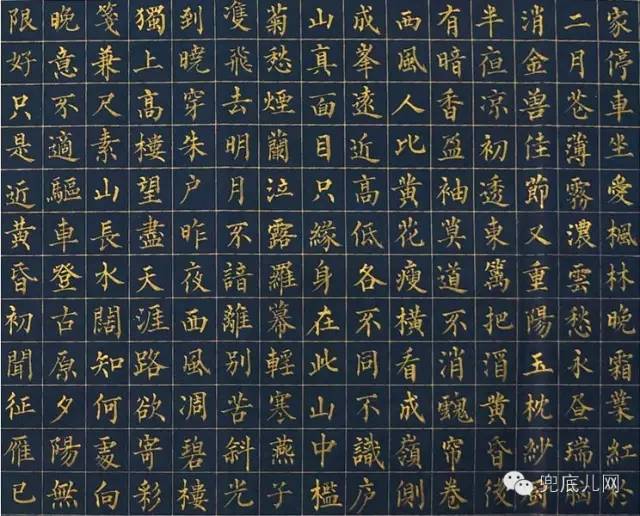 家停車坐愛楓林晚霜葉紅於
二月花薄霧濃雲愁永昼瑞腦
消金兽佳節又重陽玉枕紗厨
半夜凉初透東篱把酒黄昏後
有暗香盈袖莫道不消魂帘卷
西風人比黄花瘦橫看成嶺側
成峯遠近高低各不同不識庐
山真面目只緣身在此山中檻
菊愁煙蘭泣露羅幕輕寒燕子
雙飛去明月不諳離別苦斜光
到曉穿朱户昨夜西風凋碧樹
獨上高樓望盡天涯路欲寄彩
箋兼尺素山長水闊知何處向
晚意不適驅車登古原夕陽無
限好只是近黄昏初聞征雁已
兜底儿网